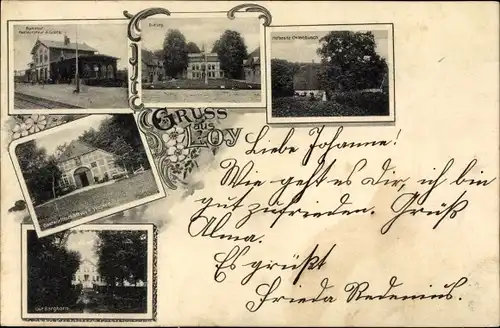 Bahnhof
GRUSS
aus
LOY
Liebe Johanne!
Wie geht es Dir, ich bin
gut zufrieden. Grüß
Alma.
Es grüßt
Frieda Redenius.